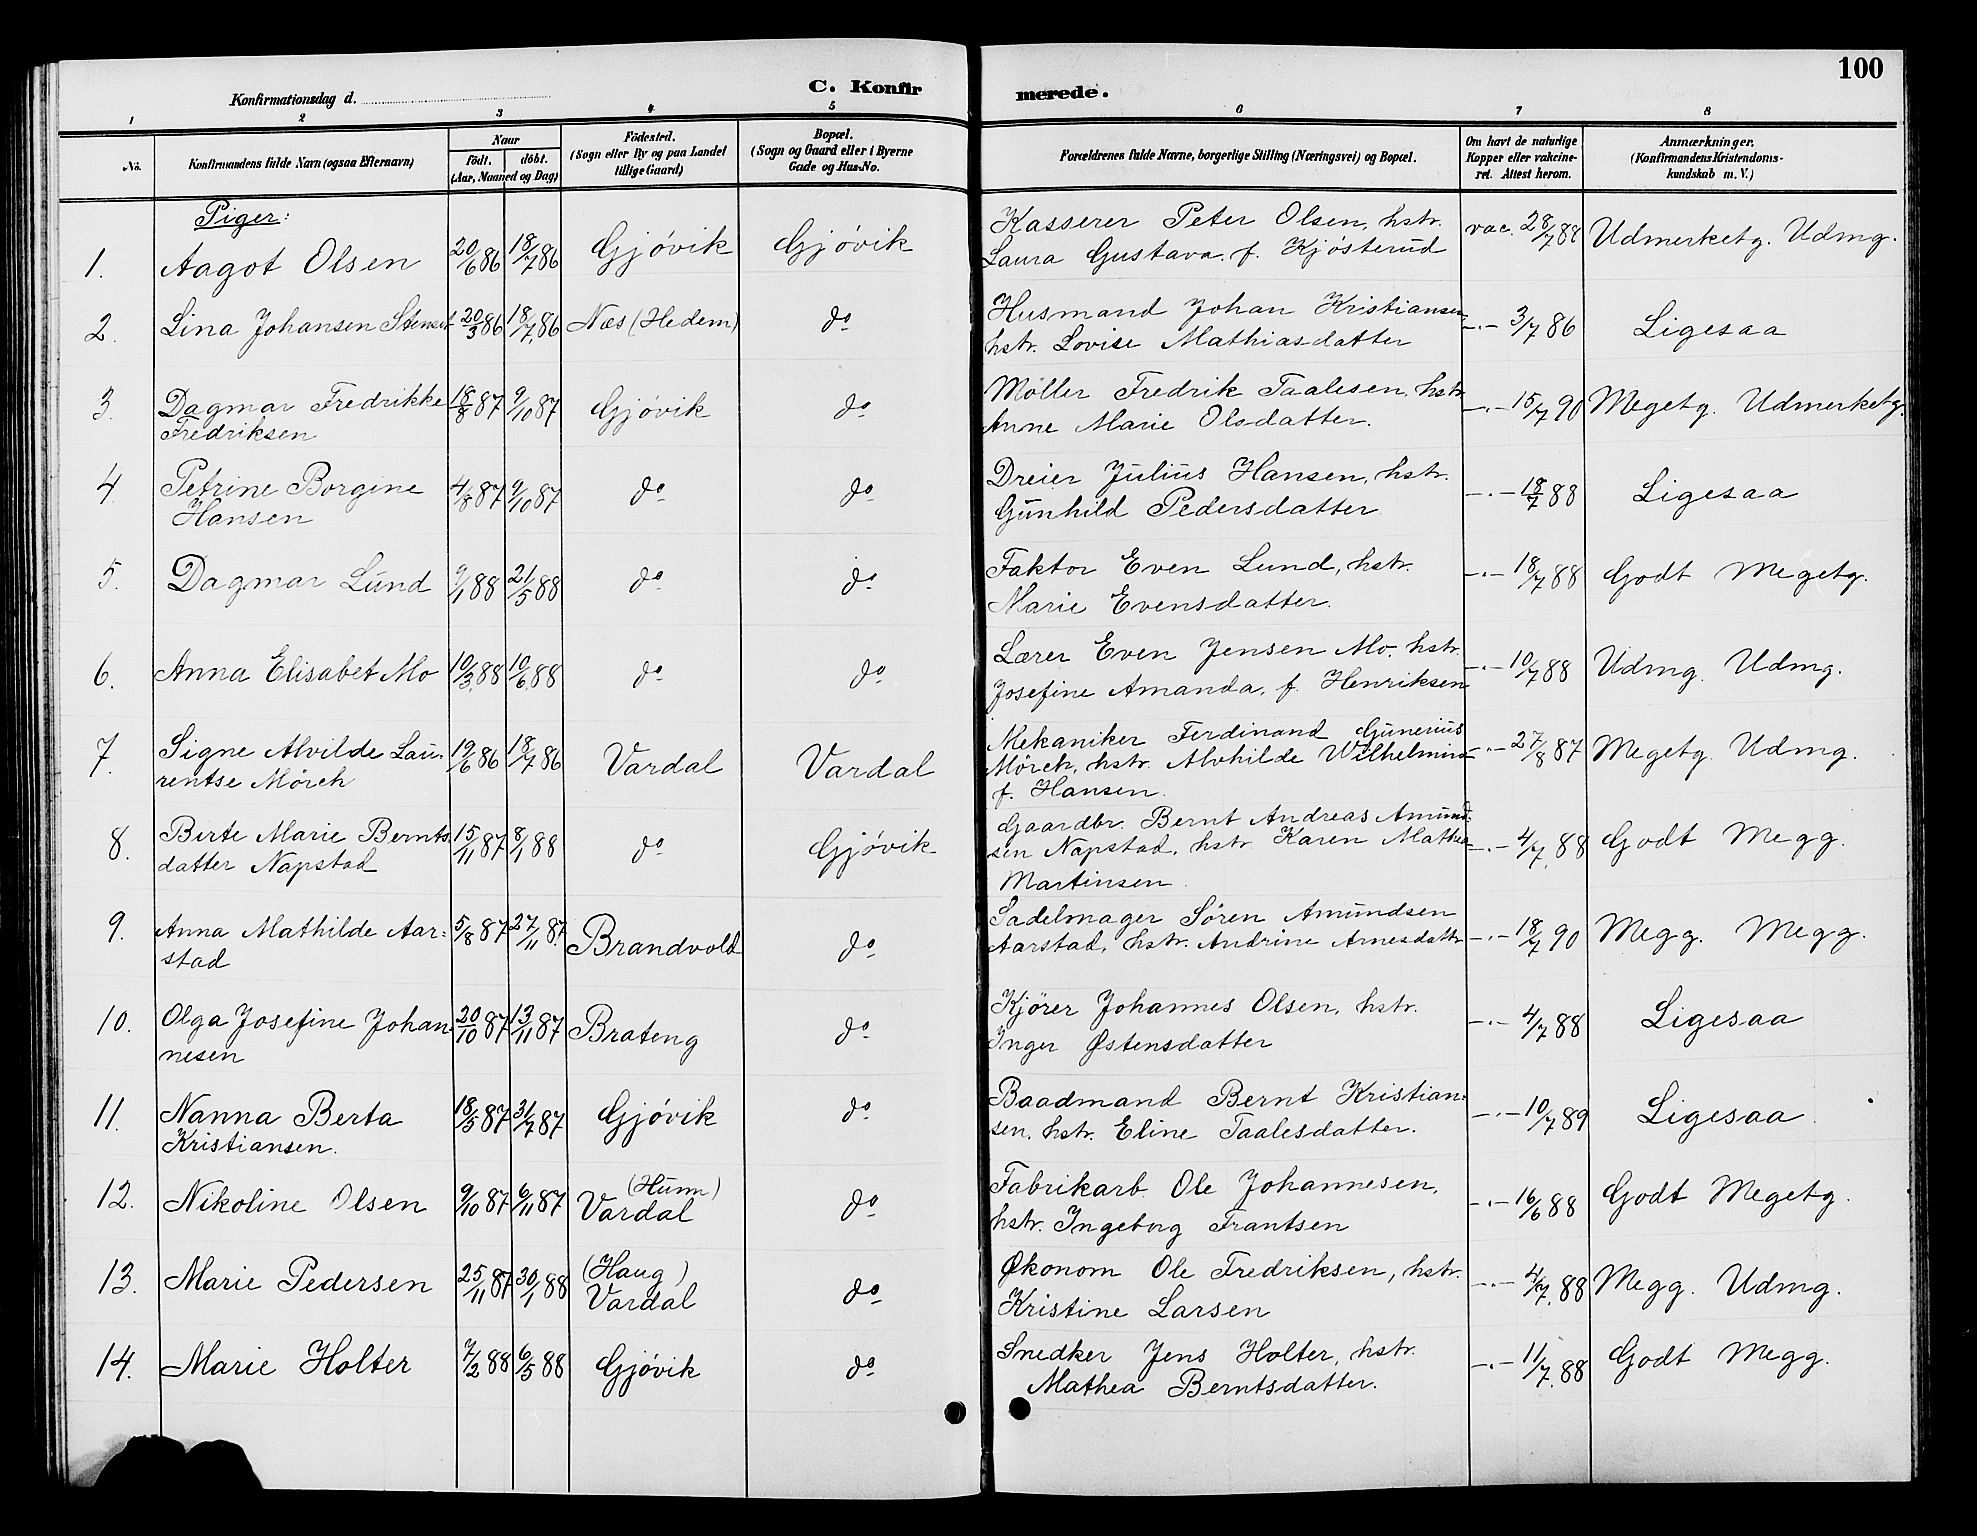 100
Konfirmationsdag d.
C. Konfirmerede.
1 2 3 4 5 6 7 8
No. Konfirmandens fulde Navn (ogsaa Efternavn) Naar Födt. döbt. (Aar, Maaned og Dag) Födested. (Sogn eller By og paa Landet tillige Gaard) Bopæl. (Sogn og Gaard eller i Byerne Gade og Hus-No. Forældrenes fulde Navne, borgerlige Stilling (Næringsvei) og Bopæl. Om havt de naturlige Kopper eller vakcineret. Attest herom. Anmærkninger. (Konfirmandens Kristendomskundskab m. V.)
Piger:
1. Aagot Olsen 20/6 86 18/7 86 Gjövik Gjövik Kasserer Peter Olsen, hstr. Laura Gustava. f. Kjösterud vac. 28/7 88 Udmerketg. Udmg.
2. Lina Johansen Stenset 20/3 86 18/7 86 Næs (Hedem) do Husmand Johan Kristiansen, hstr. Lovise Mathiasdatter -"- 3/7 86 Ligesaa
3. Dagmar Fredrikke Fredriksen 18/8 87 9/10 87 Gjövik do Möller Fredrik Taalesen, hstr. Anne Marie Olsdatter. -"- 15/7 90 Megetg. Udmerketg.
4. Petrine Borgine Hansen 4/8 87 9/10 87 do do Dreier Julius Hansen, hstr. Gunhild Pedersdatter -"- 18/7 88 Ligesaa
5. Dagmar Lund 9/1 88 21/5 88 do do Faktor Even Lund, hstr. Marie Evensdatter. -"- 18/7 88 Godt Megetg.
6. Anna Elisabet Mo 10/3 88 10/6 88 do do Lærer Even Jensen Mo. hstr. Josefine Amanda. f. Henriksen -"- 10/7 88 Udmg. Udmg.
7. Signe Alvilde Laurentse Mörch 19/6 86 18/7 86 Vardal Vardal Mekaniker Ferdinand Gunerius Mörch, hstr. Alvhilde Wilhelmine f. Hansen. -"- 27/8 87 Megetg. Udmg.
8. Berte Marie Berntsdatter Napstad 15/11 87 8/1 88 do Gjövik Gaardbr. Bernt Andreas Amundsen Napstad, hstr. Karen Mathea Martinsen. -"- 4/7 88 Godt Megg.
9. Anna Mathilde Aarstad 5/8 87 27/11 87 Brandvold do Sadelmager Sören Amundsen Aarstad, hstr. Andrine Arnesdattr -"- 18/7 90 Megg. Megg.
10. Olga Josefine Johannesen 20/10 87 13/11 87 Brateng do Kjörer Johannes Olsen, hstr. Inger Østensdatter -"- 4/7 88 Ligesaa
11. Nanna Berta Kristiansen. 18/5 87 31/7 87 Gjövik do Baadmand Bernt Kristiansen, hstr. Eline Taalesdatter. -"- 10/7 89 Ligesaa
12. Nikoline Olsen 9/10 87 6/11 87 (Hunn) Vardal do Fabrikarb. Ole Johannesen, hstr. Ingeborg Frantsen -"- 16/6 88 Godt Megetg.
13. Marie Pedersen 25/11 87 30/1 88 (Haug) Vardal do Økonom Ole Fredriksen, hstr. Kristine Larsen -"- 4/7. 88 Megg. Udmg.
14. Marie Holter 7/2 88 6/5 88 Gjövik do Snedker Jens Holter, hstr. Mathea Berntsdatter. -"- 11/7. 88 Godt Megg.